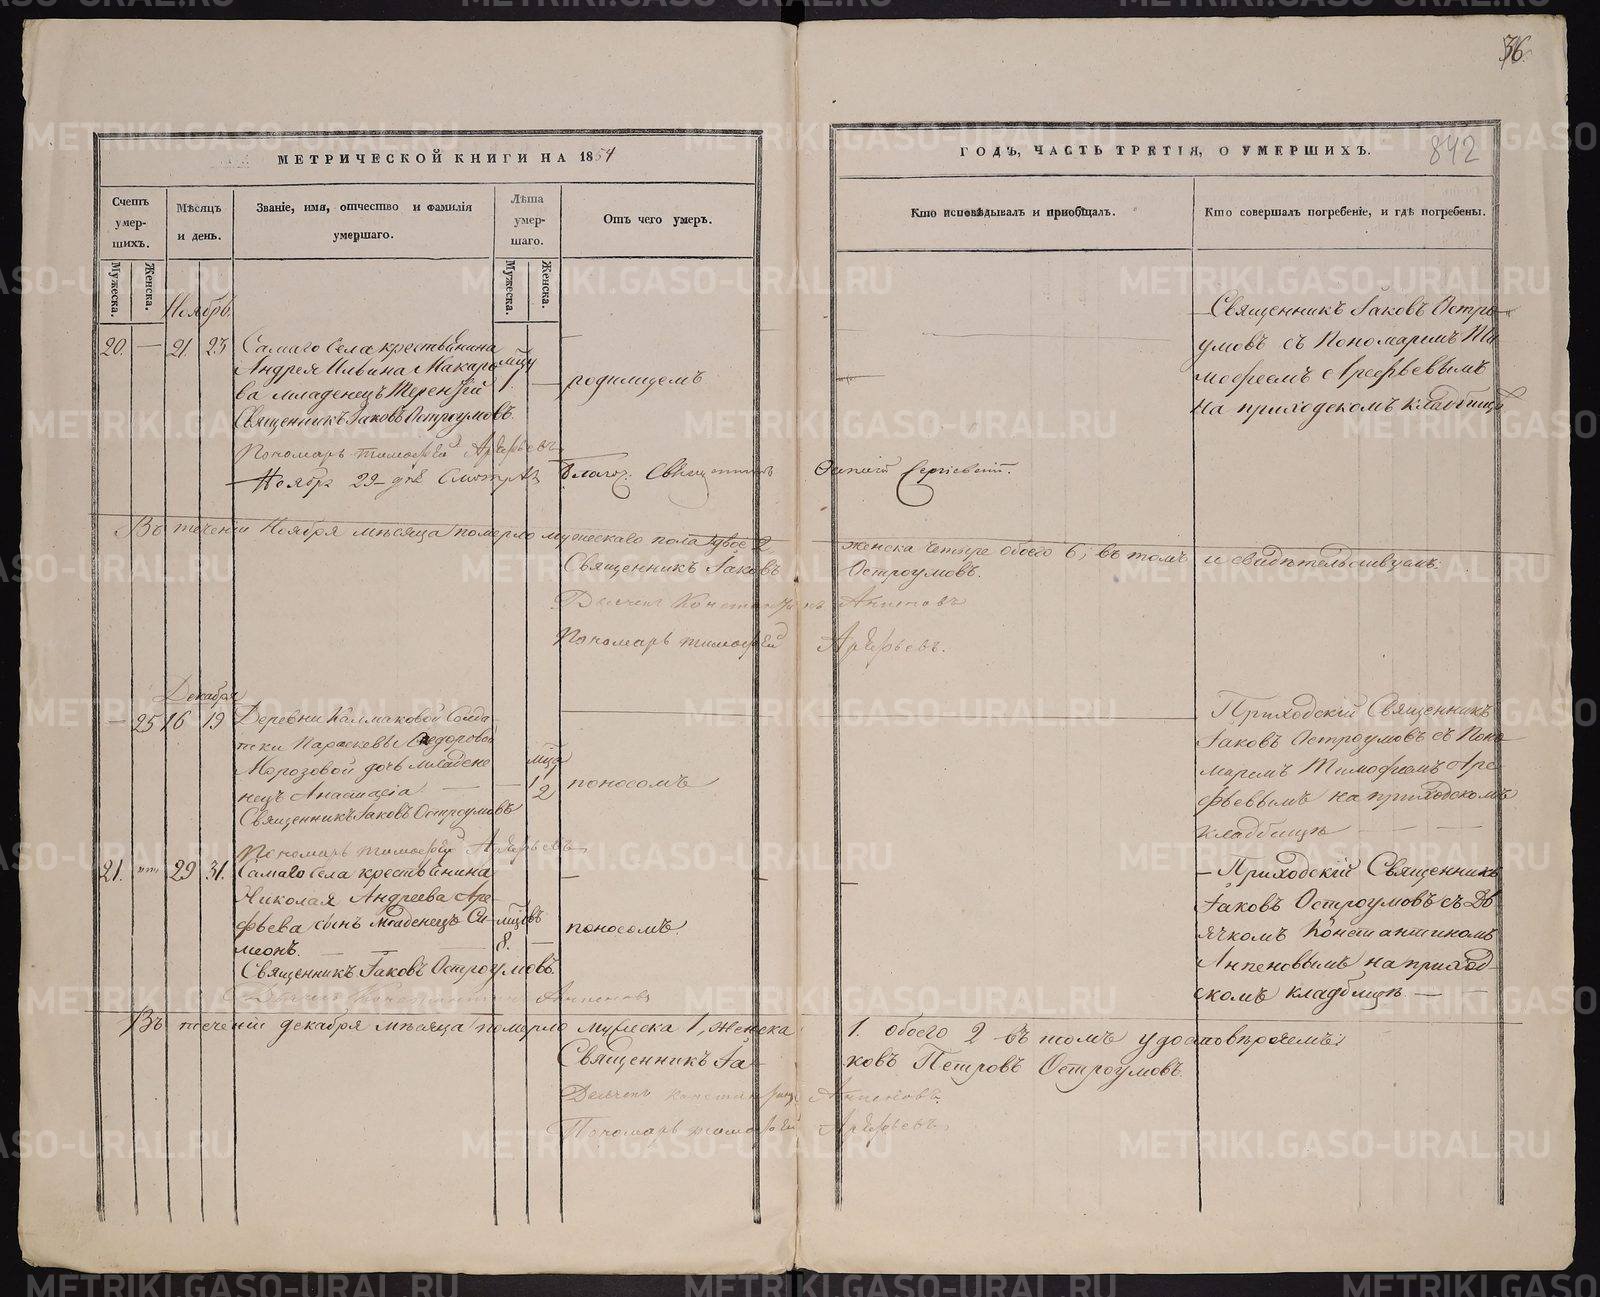 36.
842
МЕТРИЧЕСКОЙ КНИГИ НА 1854
ГОДЪ, ЧАСТЬ ТРЕТІЯ, О УМЕРШИХЪ.
Счетъ умер-шихъ.
Мужеска.
Женска.
Мѣсяцъ и день.
Званіе, имя, отчество и фамилія умершаго.
Лѣта умер-шаго.
Мужеска.
Женска.
Отъ чего умеръ.
Кто исповѣдывалъ и пріобщалъ.
Кто совершалъ погребеніе, и гдѣ погребены.
Ноябрь.
20. — 21. 23
Самаго Села крестьянина
Андрея Ильина Макаро
ва младенецъ Терентій
Священникъ Іаковъ Остроумовъ.
Пономарь Тимофей Арефьевъ
1.
родимцемъ
Священникъ Іаковъ Остро-
умовъ съ Пономаремъ Ти
мофеемъ Арефьевымъ
на приходскомъ кладбищѣ
Ноября 29 дня Смотрѣлъ Благоч. Священникъ Сергіевскій.
Въ теченіи Ноября мѣсяца померло мужескаго пола двое 2
женска четыре обоего 6, въ томъ и свидѣтельствуемъ:
Священникъ Іаковъ Остроумовъ.
Дьячекъ Константинъ Анпеновъ
Пономарь Тимофей Арефьевъ.
Декабря
— 25 16 19
Деревни Калмаковой Солда
тки Параскевы Ѳедоровой
Морозовой дочь младене
нецъ Анастасія
Священникъ Іаковъ Остроумовъ
Пономарь Тимофей Арефьевъ
1/2
поносомъ
Приходскій Священникъ
Іаковъ Остроумовъ съ Поно
маремъ Тимофеемъ Аре
фьевымъ на приходскомъ
кладбищѣ
21. 29 31.
Самаго села крестьянина
Николая Андреева Аре-
фьева сынъ младенецъ Си-
меонъ.
Священникъ Іаковъ Остроумовъ.
Дьячекъ Константинъ Анпеновъ
мѣцовъ
8.
поносомъ.
Приходскій Священникъ
Іаковъ Остроумовъ съ Дь
ячкомъ Константиномъ
Анпеновымъ на приход-
скомъ кладбищѣ.
Въ теченіи декабря мѣсяца померло мужеска 1, женска
1. обоего 2 въ томъ удостовѣряемъ:
Священникъ Іа-
ковъ Петровъ Остроумовъ.
Дьячекъ Константинъ Анпеновъ.
Пономарь Тимофей Арефьевъ
METRIKI.GASO-URAL.RU